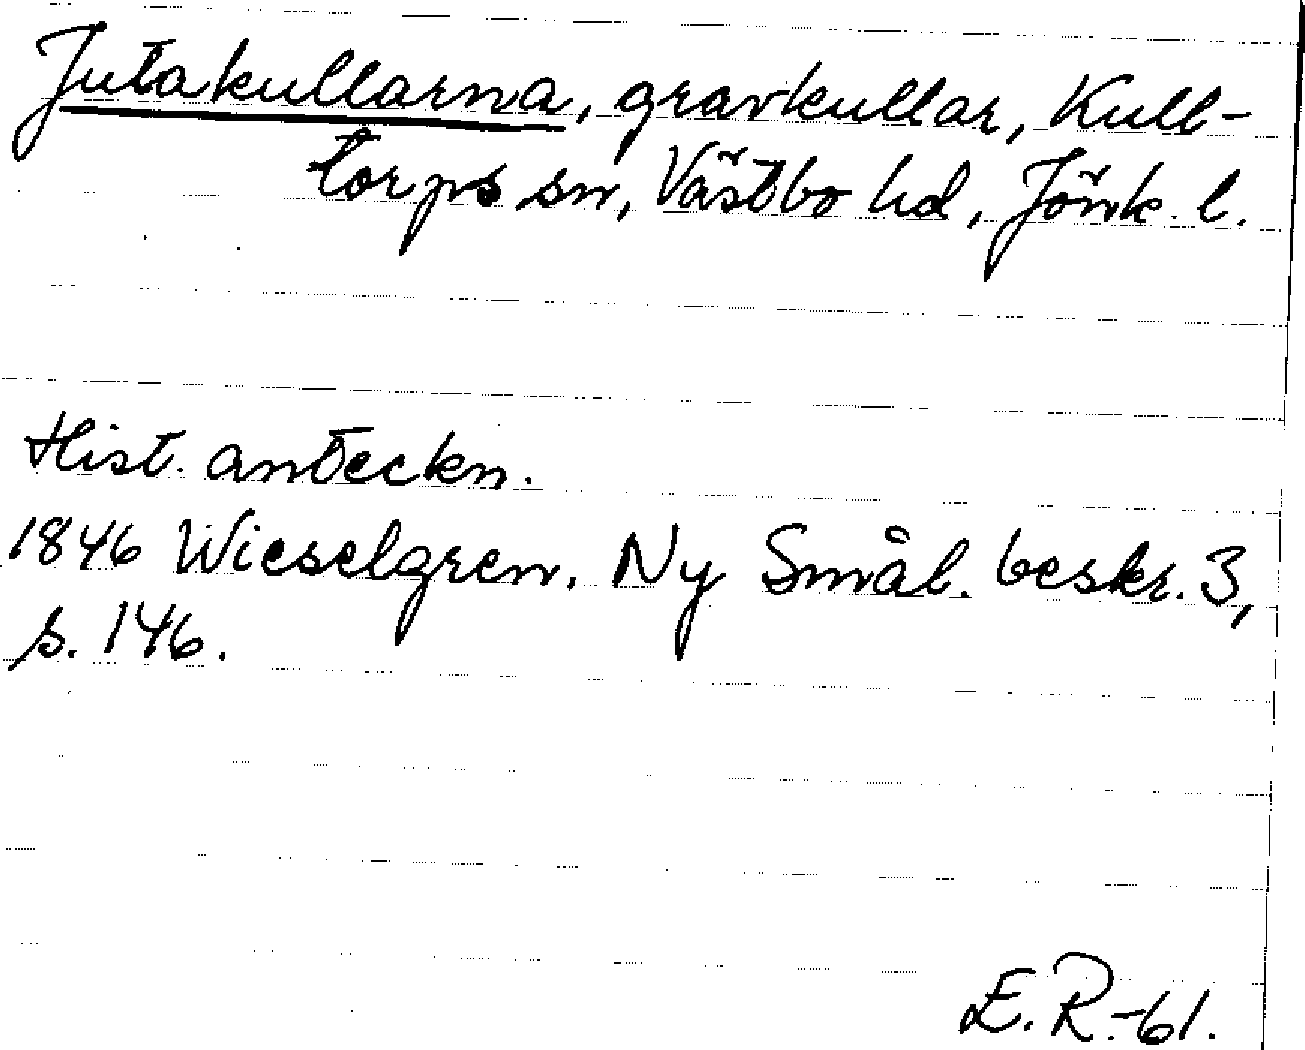 Jutakullarna, gravkullar, Kull-
torps sn, Västbo hd, Jönk. l.
Hist. anteckn.
1846 Wieselgren. Ny Smål. beskr. 3,
s. 146.
E.R.-61.